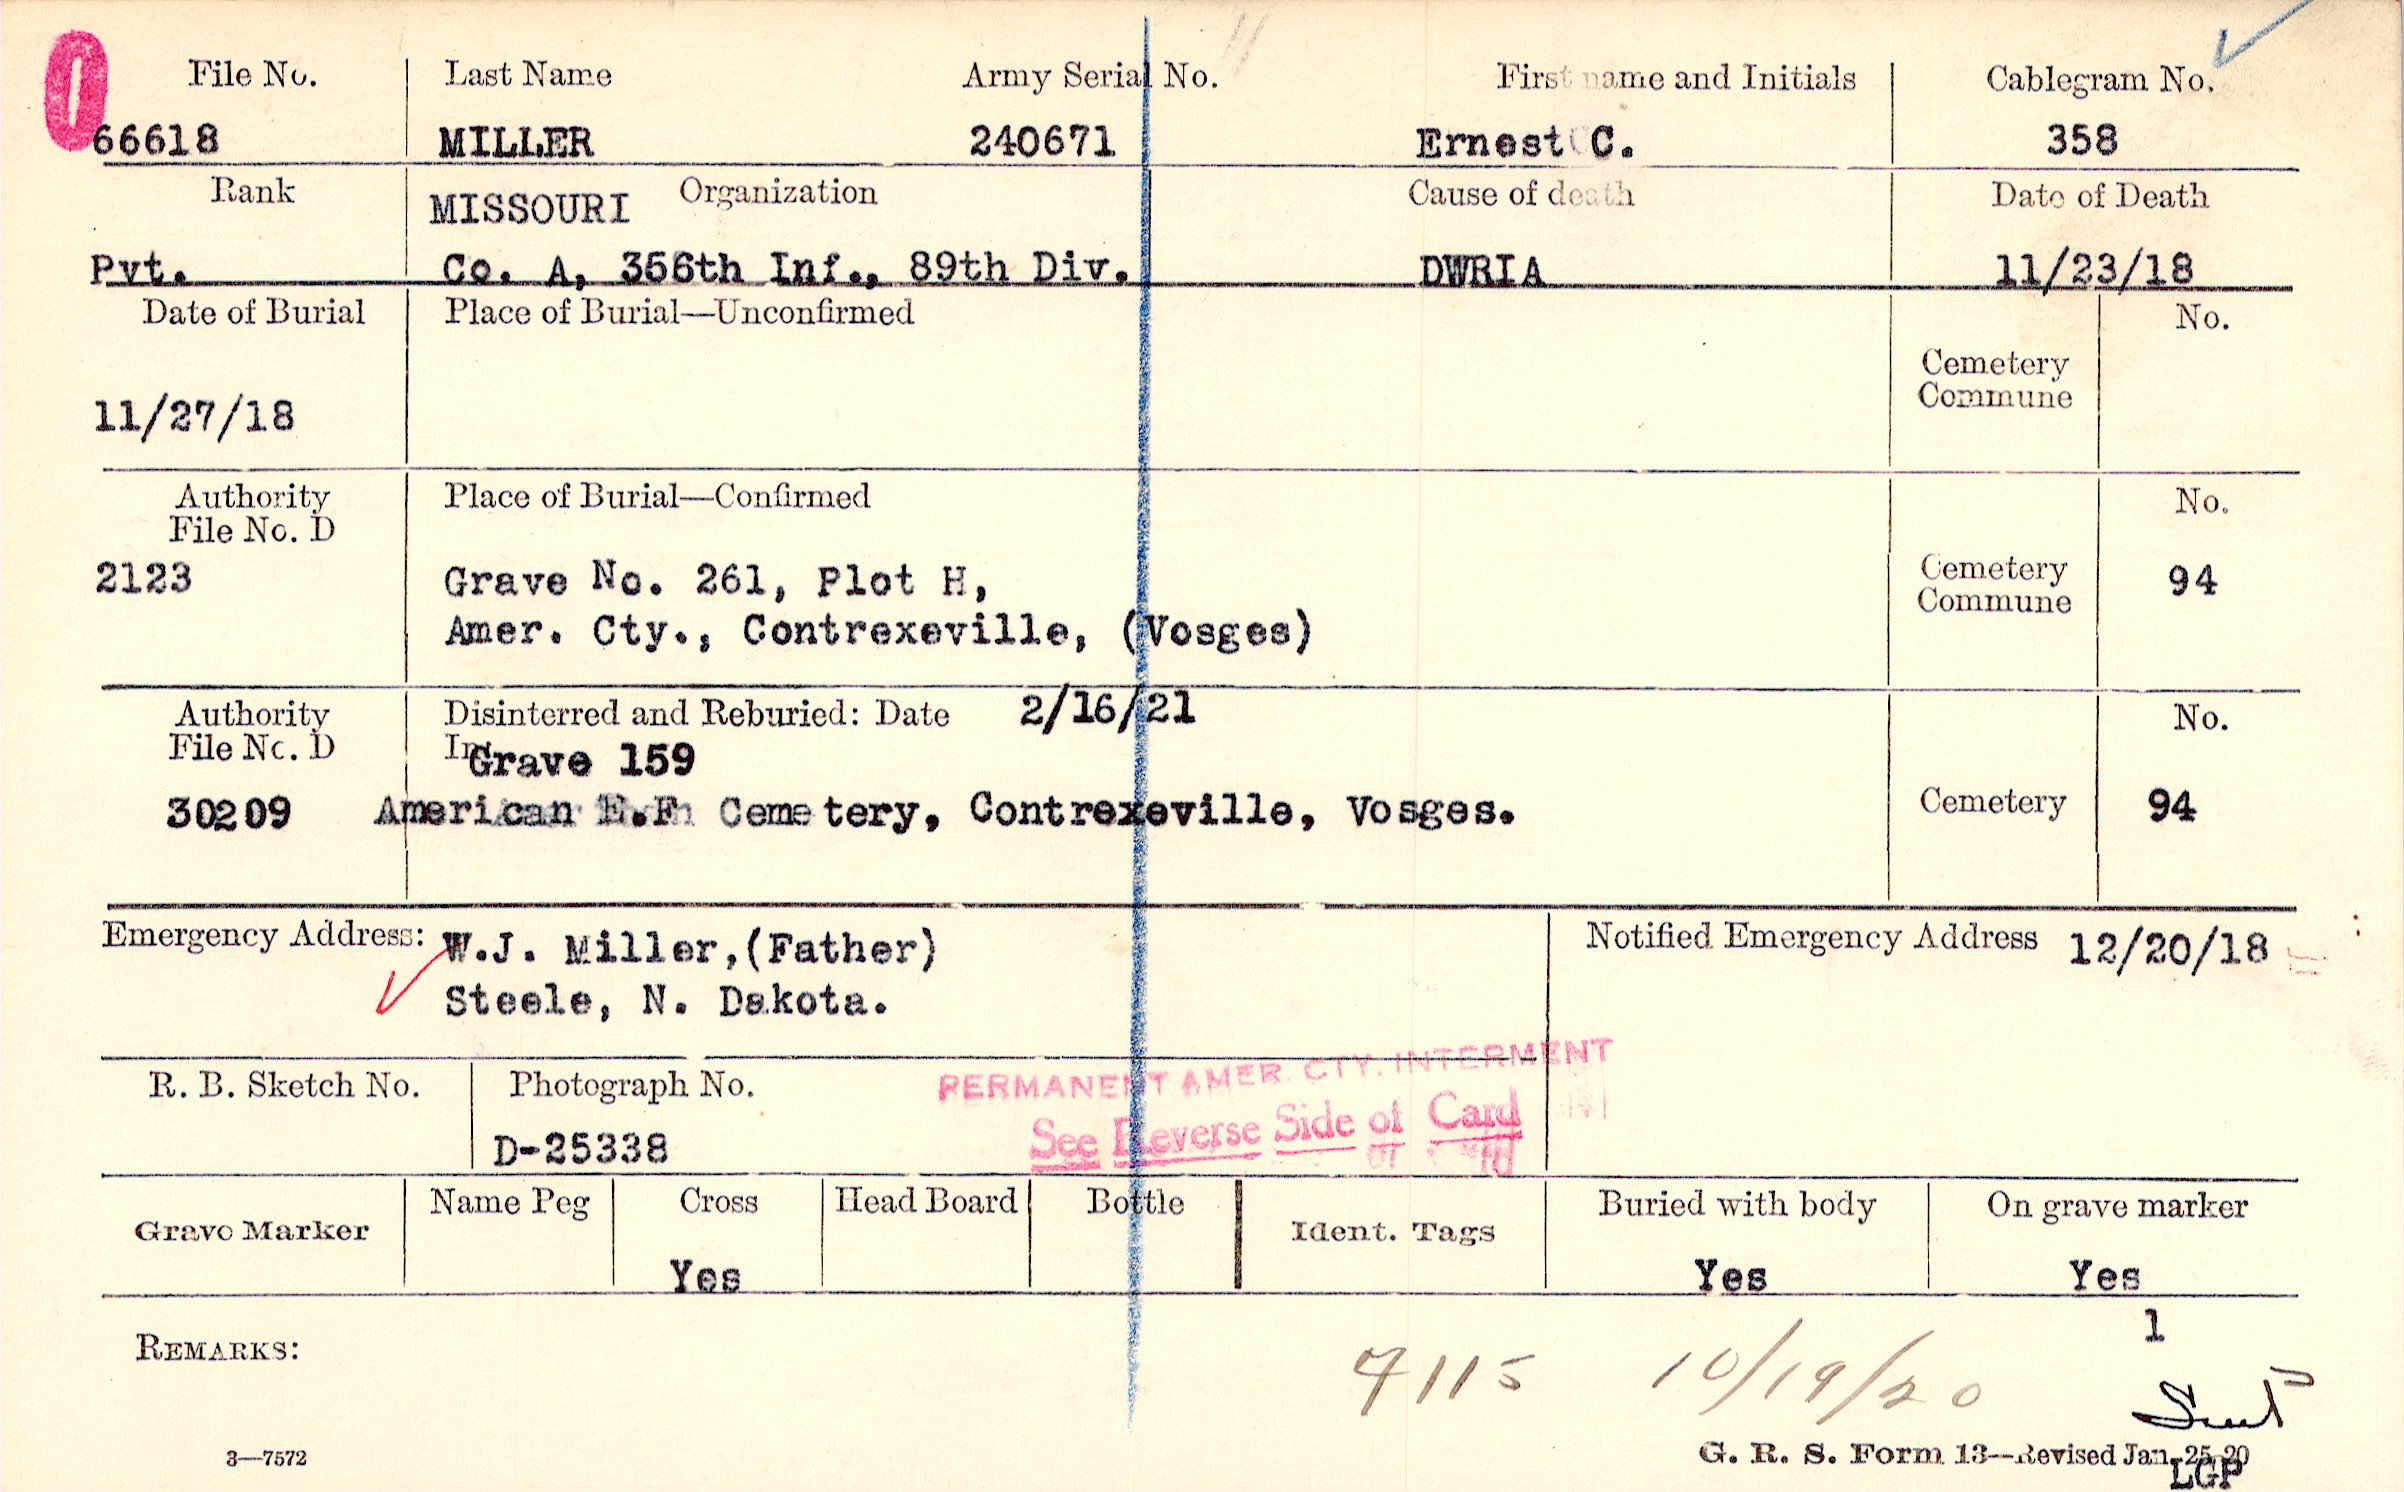 File No. Last Name Army Serial No. First name and Initials Cablegram No.
66618 MILLER 240671 Ernest C. 358
Rank MISSOURI Organization Cause of death Date of Death
Pvt. Co. A, 356th Inf., 89th Div. DWRIA 11/23/18
Date of Burial Place of Burial—Unconfirmed No.
Cemetery
Commune
11/27/18
Authority Place of Burial—Confirmed No.
File No. D
2123 Grave No. 261, Plot H, Cemetery 94
Commune
Amer. Cty., Contrexeville, (Vosges)
Authority Disinterred and Reburied: Date 2/16/21 No.
File No. D In Grave 159
30209 American E.F. Cemetery, Contrexeville, Vosges. Cemetery 94
Emergency Address: W.J. Miller,(Father) Notified Emergency Address 12/20/18
Steele, N. Dakota.
PERMANENT AMER. CTY. INTERMENT
R. B. Sketch No. Photograph No.
See Reverse Side of Card
D-25338
Grave Marker Name Peg Cross Head Board Bottle Ident. Tags Buried with body On grave marker
Yes Yes Yes
1
REMARKS: 7115 10/19/20
3—7572 G. R. S. Form 13—Revised Jan. 25-20
LGP